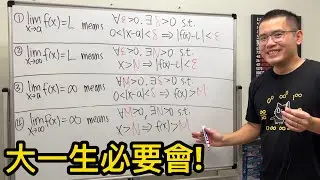 ① lim f(x)=L means ∀ε>0, ∃δ>0 s.t.
x→a 0<|x-a|<δ ⇒ |f(x)-L|<ε
② lim f(x)=L means ∀ε>0, ∃N>0 s.t.
x→∞ x>N ⇒ |f(x)-L|<ε
③ lim f(x)=∞ means ∀M>0, ∃δ>0 s.t.
x→a 0<|x-a|<δ ⇒ f(x)>M
④ lim f(x)=∞ means ∀M>0, ∃N>0 s.t.
x→∞ x>N ⇒ f(x)>M
大一生必要會!